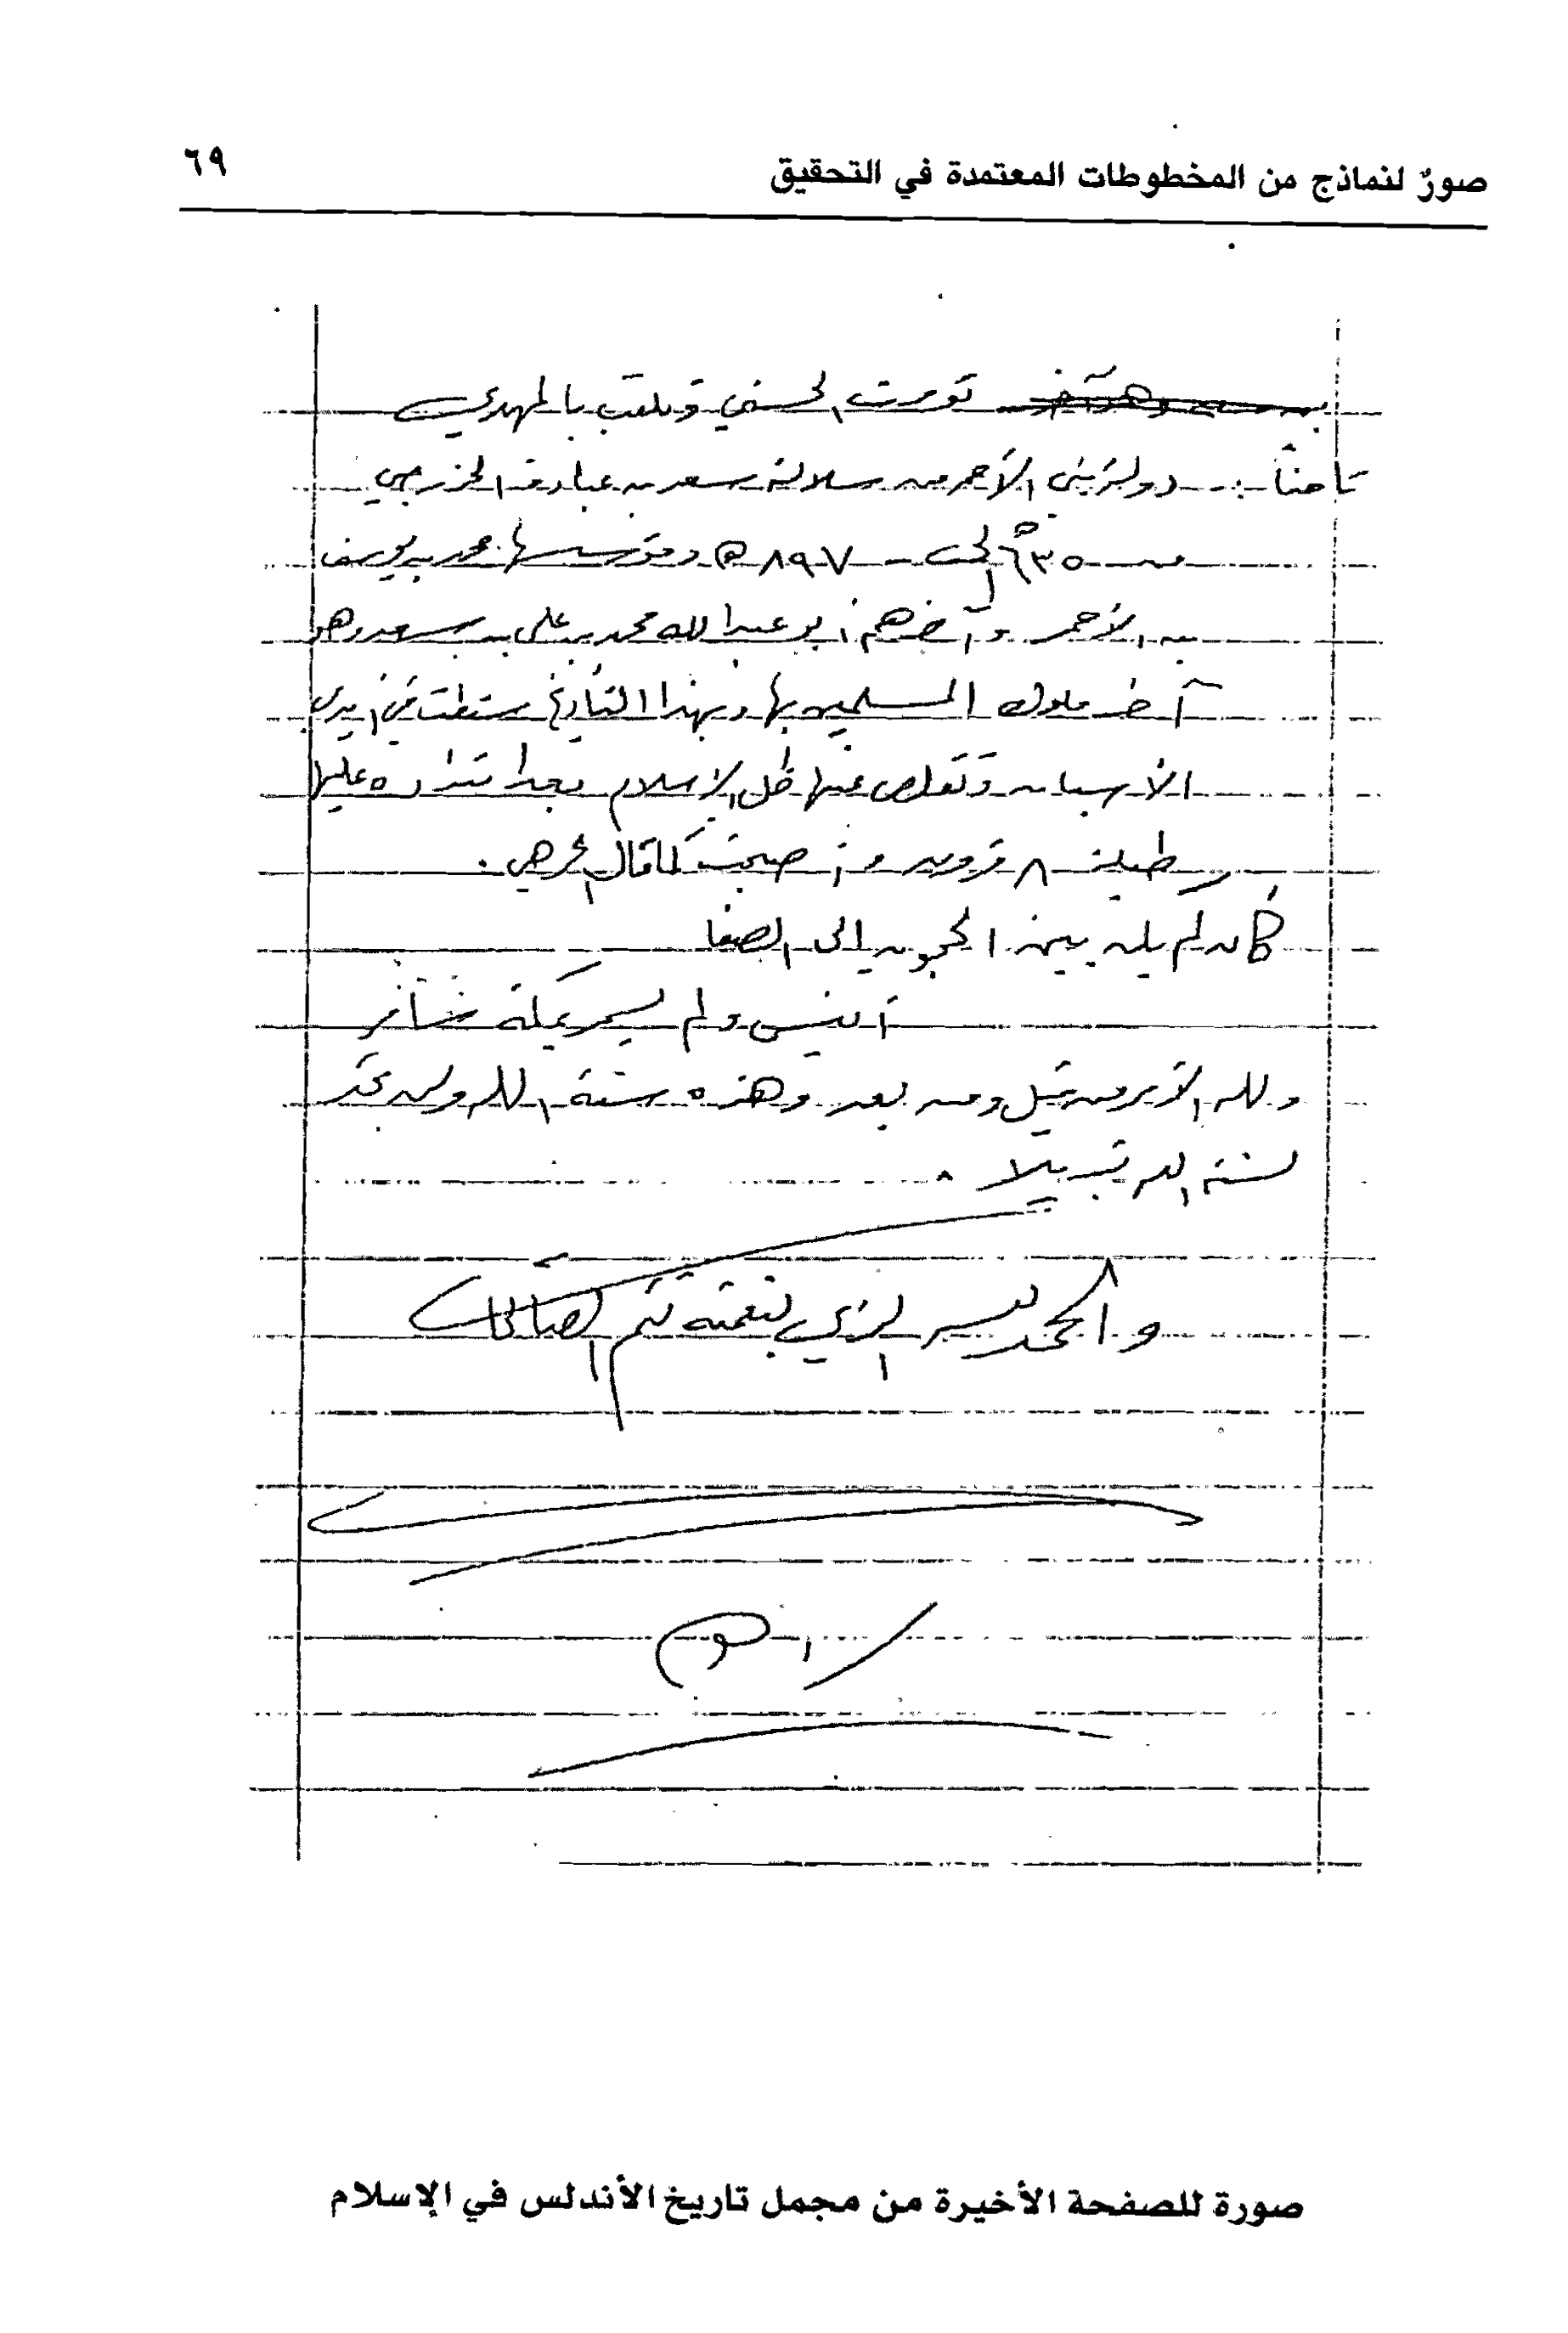 صورٌ لنماذج من المخطوطات المعتمدة في التحقيق
٦٩
تومرت الحسني ويلقب بالمهدي
ثامناً :- دولة بني الأحمر من سلالة سعد بن عبادة الخزرجي
من ٦٣٥ هـ إلى - ٨٩٧ هـ ومؤسسها محمد بن يوسف
بن الأحمر وآخرهم أبو عبد الله محمد بن علي بن سعد وهو
آخر ملوك المسلمين بها وبهذا التأريخ سقطت في أيدي
الأسبان وتقلص عنها ظل الإسلام بعد عليها
طيلة ٨ قرون وأصبحت كما قال الجرهمي .
كأن لم يكن بين الحجون إلى الصفا
أنيس ولم يسمر بمكة سامر
ولله الأمر من قبل ومن بعد وهذه سنة الله ولن تجد
لسنة الله تبديلا
والحمد لله الذي بنعمته تتم الصالحات
صورة للصفحة الأخيرة من مجمل تاريخ الأندلس في الإسلام